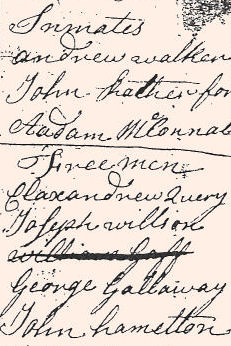 Inmates
andrew walker
John for
Aadam McConnal
Freemen
Elaxandrew Query
Joseph willson
william Goff
George Gallaway
John hamelton